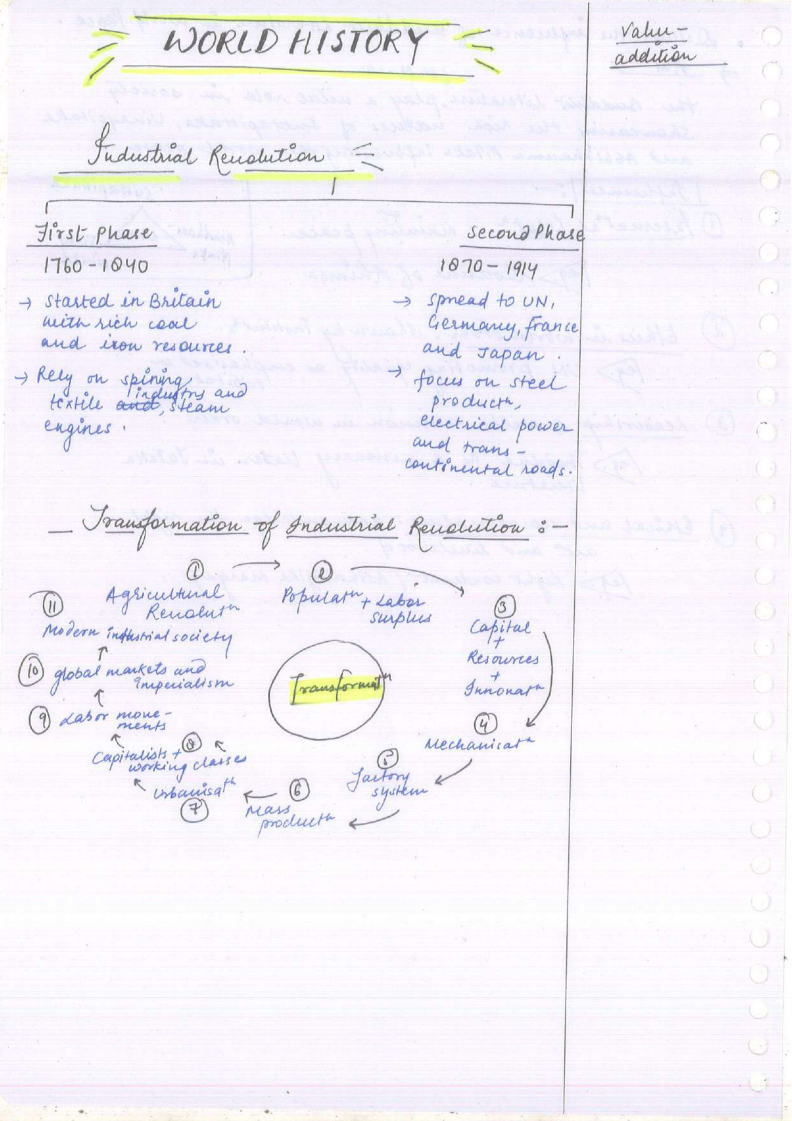 WORLD HISTORY
Value-
addition
Industrial Revolution
First Phase
1760-1840
→ Started in Britain
with rich coal
and iron resources.
→ Rely on spining,
industry and
textile and, steam
engines.
Second Phase
1870-1914
→ spread to UN,
Germany, france
and Japan.
→ focus on steel
productn,
electrical power
and trans-
continental roads.
Transformation of Industrial Revolution :-
① Agricultural
Revolutn
② Populatn + Labor
surplus
③
Capital
+
Resources
+
Innovatn
④
Mechanisatn
⑤
factory
system
⑥
Mass
productn
Urbanisatn
⑦
Capitalists + ⑧
working classes
⑨ Labor move-
ments
⑩ global markets and
imperialism
⑪
Modern industrial society
Transformatn